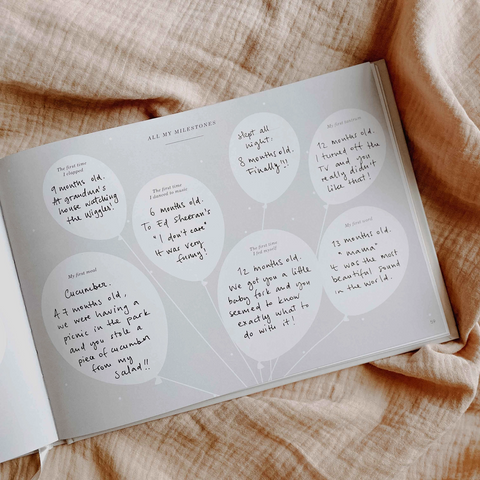 ALL MY MILESTONES
The first time
I clapped
9 months old.
At grandma's
house watching
the Wiggles!
The first time
I danced to music
6 months old.
To Ed Sheeran's
"I don't care"
It was very
funny!
Slept all
night.
8 months old.
Finally!!!
My first tantrum
12 months old.
I turned off the
TV and you
really didn't
like that!
My first meal
Cucumber.
4.7 months old,
we were having a
picnic in the park
and you stole a
piece of cucumber
from my
salad!!
The first time
I fed myself
12 months old.
We got you a little
baby fork and you
seemed to know
exactly what to
do with it!
My first word
13 months old.
"mama"
It was the most
beautiful sound
in the world.